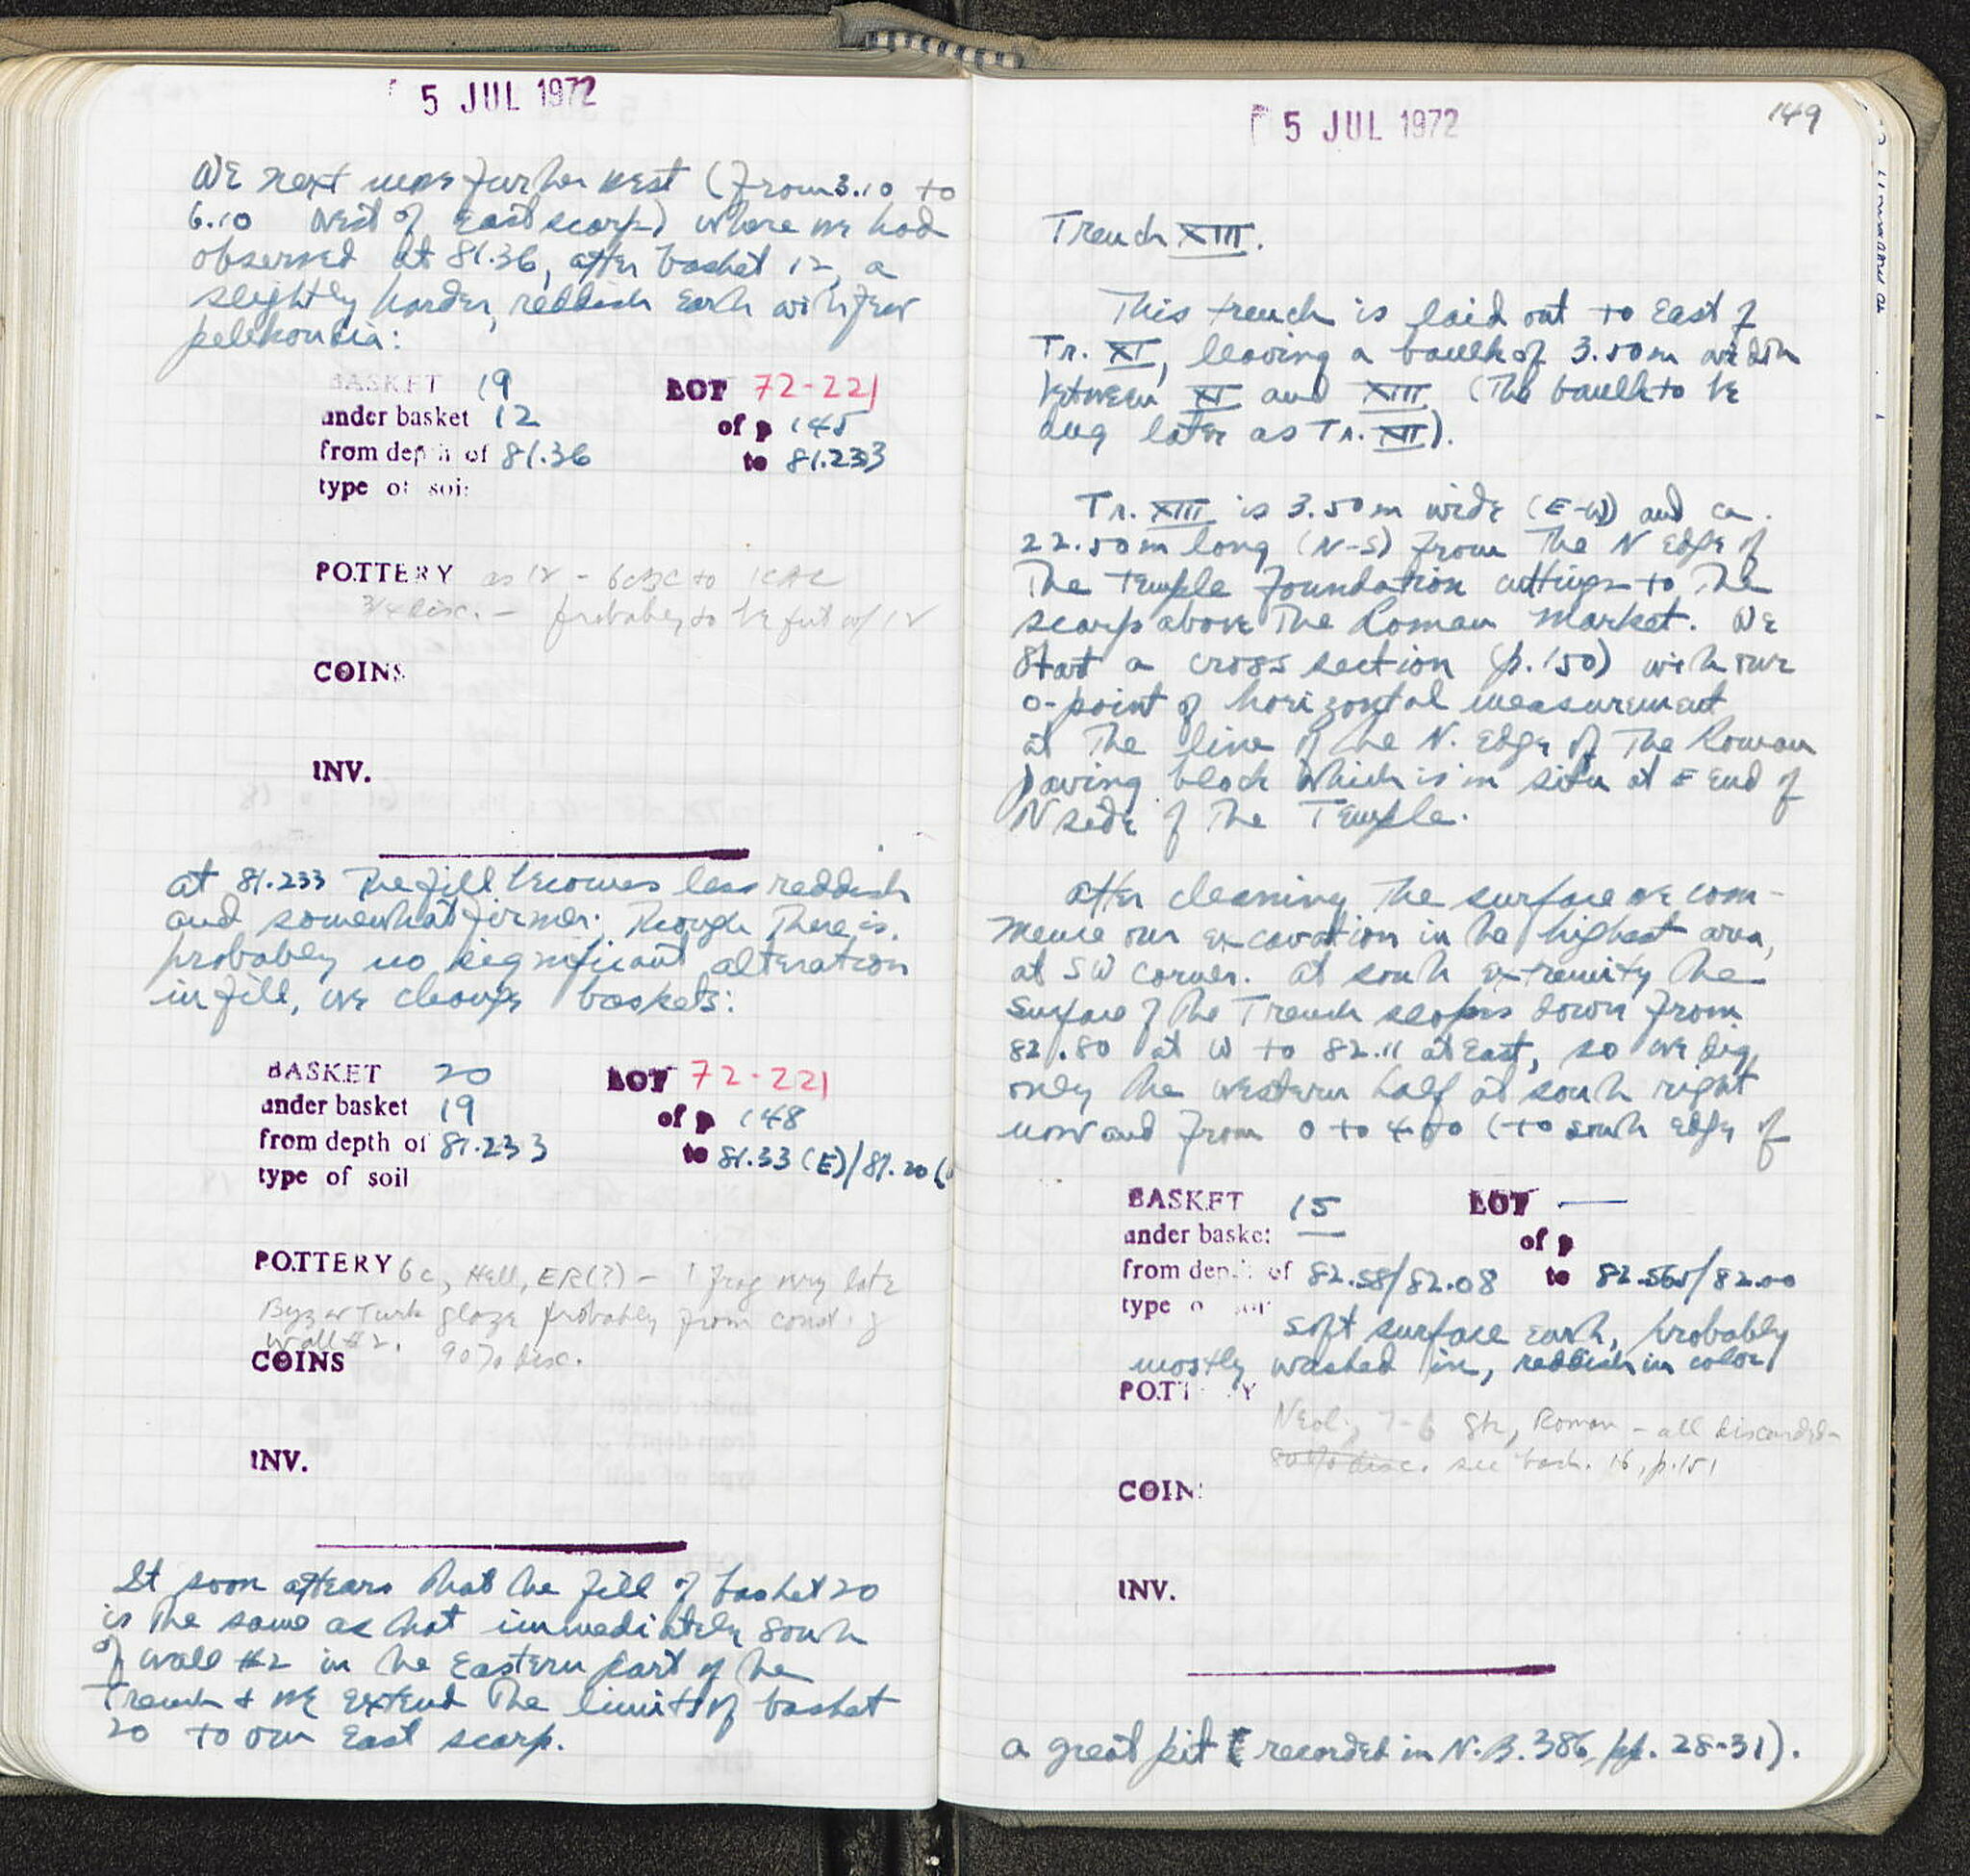 5 JUL 1972
We next move further west (from 3.10 to
6.10 west of East scarp) where we had
observed at 81.36, after basket 12, a
slightly harder, reddish earth with few
pelekoudia:
BASKET 19 LOT 72-221
under basket 12 of p 145
from depth of 81.36 to 81.233
type of soil
POTTERY as 12 - 6cBC to 1CAC
3/4 disc. - probably to be put w/ 12
COINS
INV.
at 81.233 the fill becomes less reddish
and somewhat firmer; though there is
probably no significant alteration
in fill, we change baskets:
BASKET 20 LOT 72-221
under basket 19 of p 148
from depth of 81.233 to 81.33 (E)/81.20 (
type of soil
POTTERY 6c, Hell, ER(?) - 1 frag very late
Byz or Turk glaze probably from const. of
wall #2. 90% disc.
COINS
INV.
It soon appears that the fill of basket 20
is the same as that immediately south
of wall #2 in the Eastern part of the
Trench & we extend the limits of basket
20 to our East scarp.
5 JUL 1972
149
Trench XIII.
This trench is laid out to East of
Tr. XI, leaving a baulk of 3.50m width
between XI and XIII (The baulk to be
dug later as Tr. XII).
Tr. XIII is 3.50m wide (E-W) and ca.
22.50m long (N-S) from the N edge of
the Temple foundation cuttings to the
scarp above the Roman Market. We
start a cross section (p. 150) with our
0-point of horizontal measurement
at the line of the N. edge of the Roman
paving block which is in situ at E end of
N side of the Temple.
After cleaning the surface we com-
mence our excavation in the highest area,
at SW corner. At south extremity the
surface of the Trench slopes down from
82.80 at W to 82.11 at East, so we dig
only the western half at south right
now and from 0 to 4.00 (to south edge of
BASKET 15 LOT —
under basket — of p
from depth of 82.58/82.08 to 82.565/82.00
type of soil
soft surface earth, probably
mostly washed in, reddish in color
POTTERY
Neol., 7-6 Gk, Roman - all discarded -
80% disc. see bask. 16, p. 151
COINS
INV.
a great pit (recorded in N.B. 386, pp. 28-31).